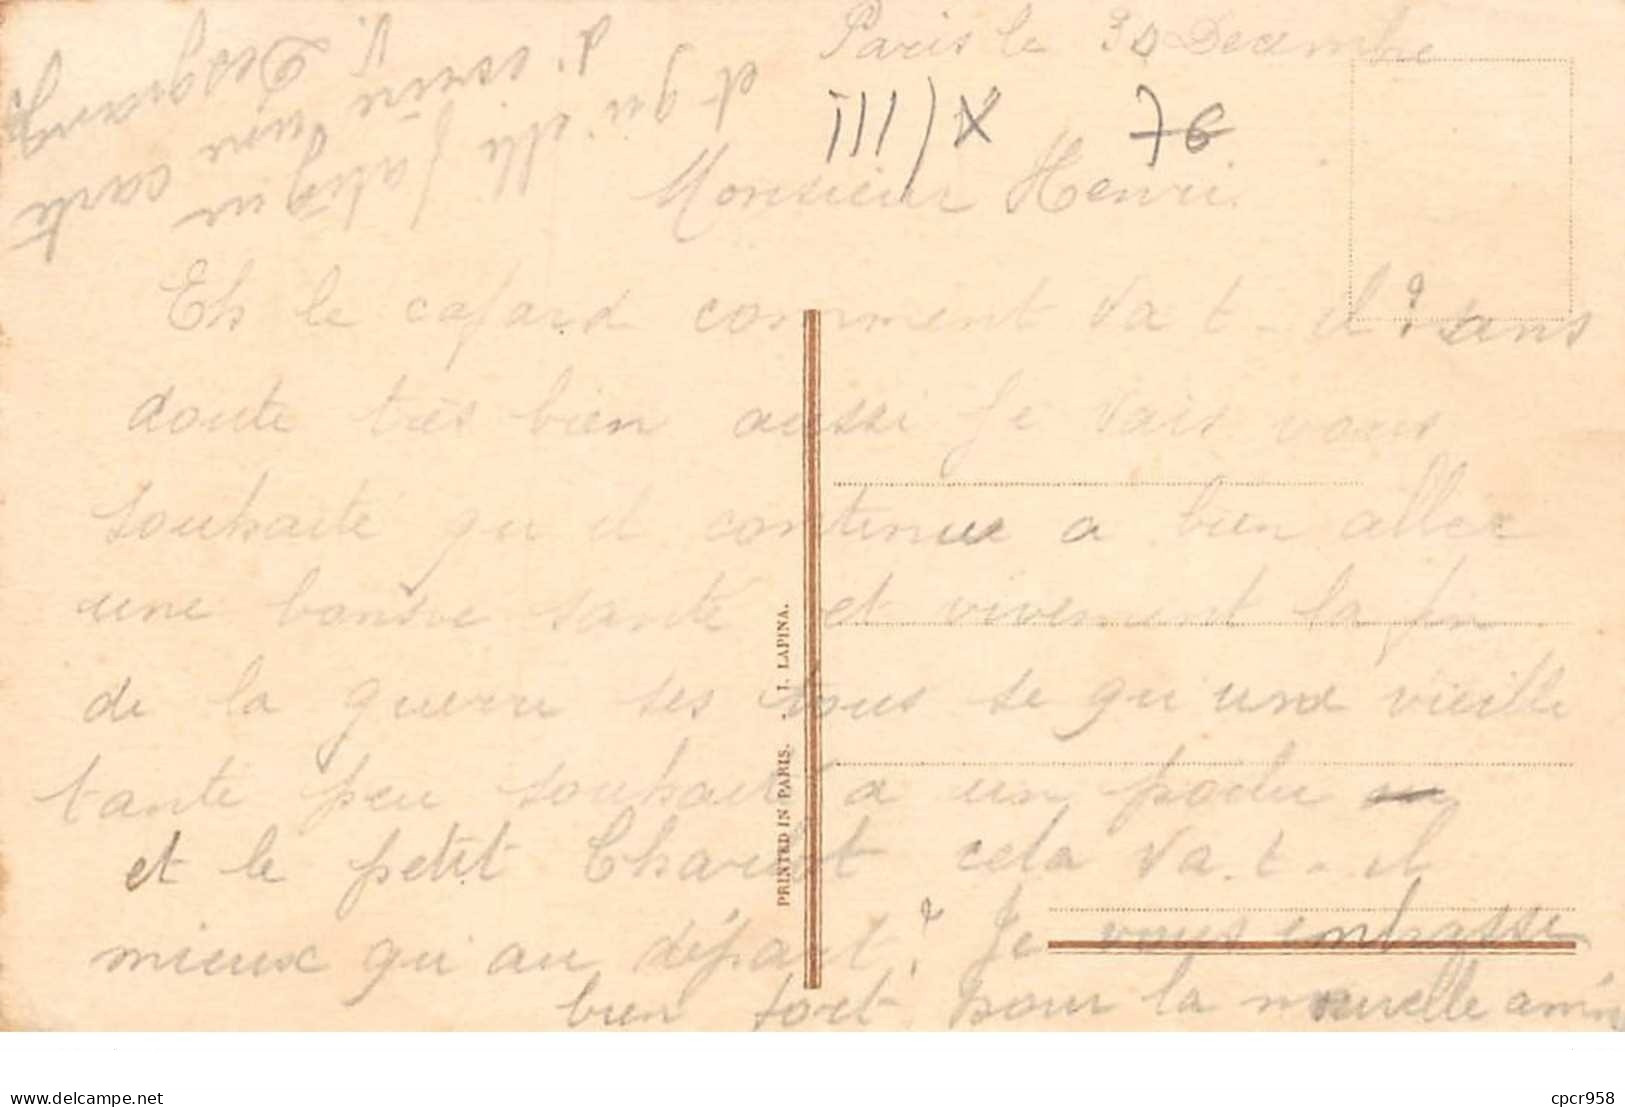 Paris le 30 Decembre
III/X 76
Monsieur Henri
Eh le cafard comment va t-il? sans
doute très bien aussi Je vais vous
souhaité qu il continue a bien aller
une bonne santé et vivement la fin
de la guerre ses tous se qu'une vieille
tante peu souhaité a un poilu
et le petit Charlot cela va.t-il
mieux qu au départ? Je vous embrasse
bien fort pour la nouvelle anné
et qu'elle fatigue carte
d'écrire une
V. Desgranges
PRINTED IN PARIS. - I. LAPINA.
www.delcampe.net
cpcr958